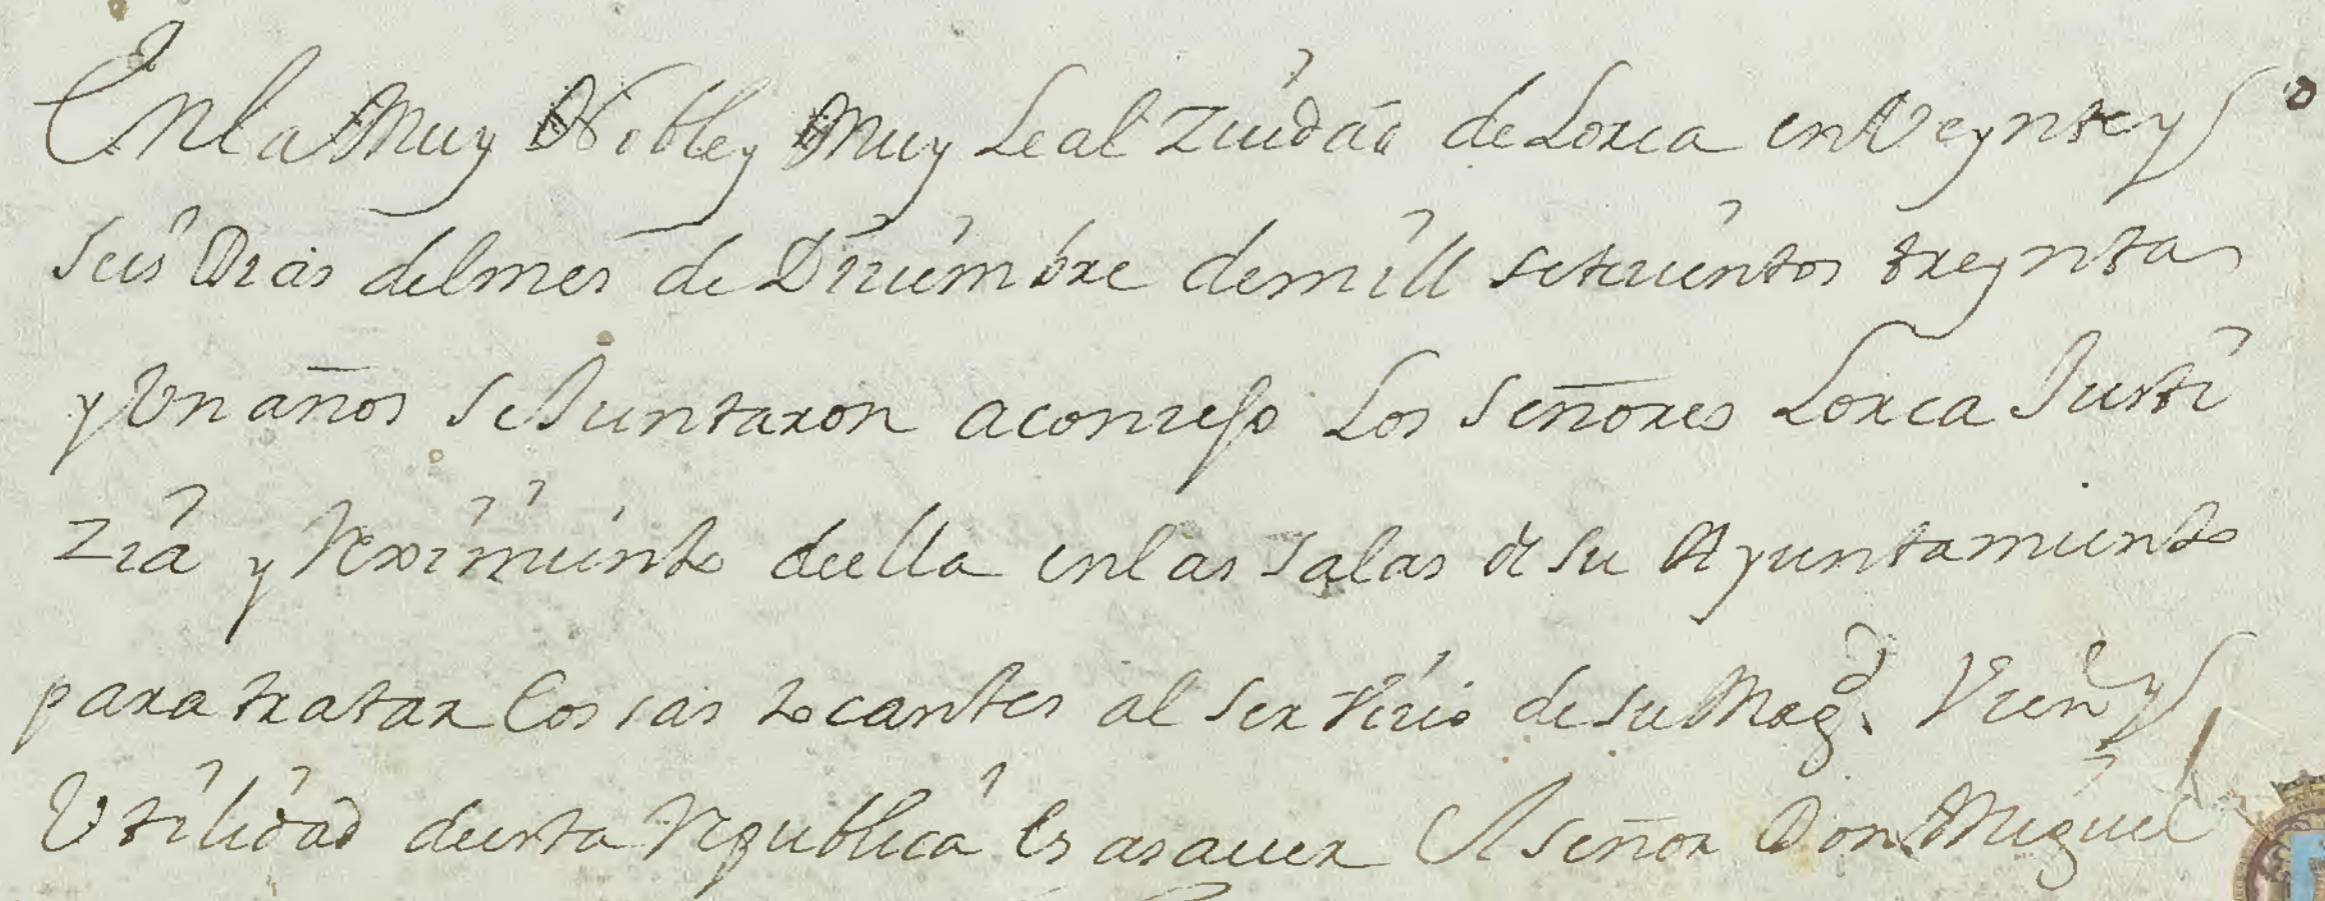 En la Muy Noble y Muy Leal Ziudad de Lorca en Veynte y
seis Dias del mes de Diziembre de mill setezientos treynta
y Un años se Juntaron a conzejo Los Señores Lorca Justi
zia y Reximiento de ella en las salas de su Ayuntamiento
para tratar Cossas tocantes al serVizio de su Magd. Vien y
Utilidad de esta Republica Es a sauer El señor Don Miguel